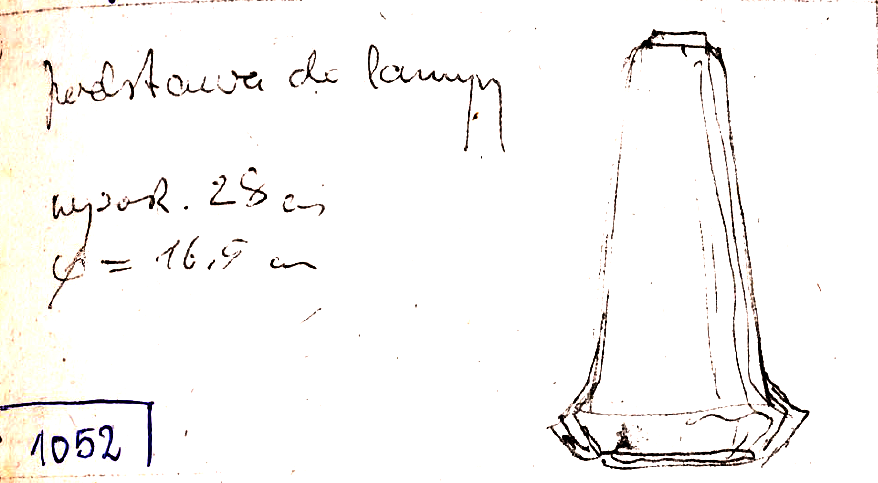 podstawa do lampy
wysok. 28 cm
φ = 16,5 cm
1052